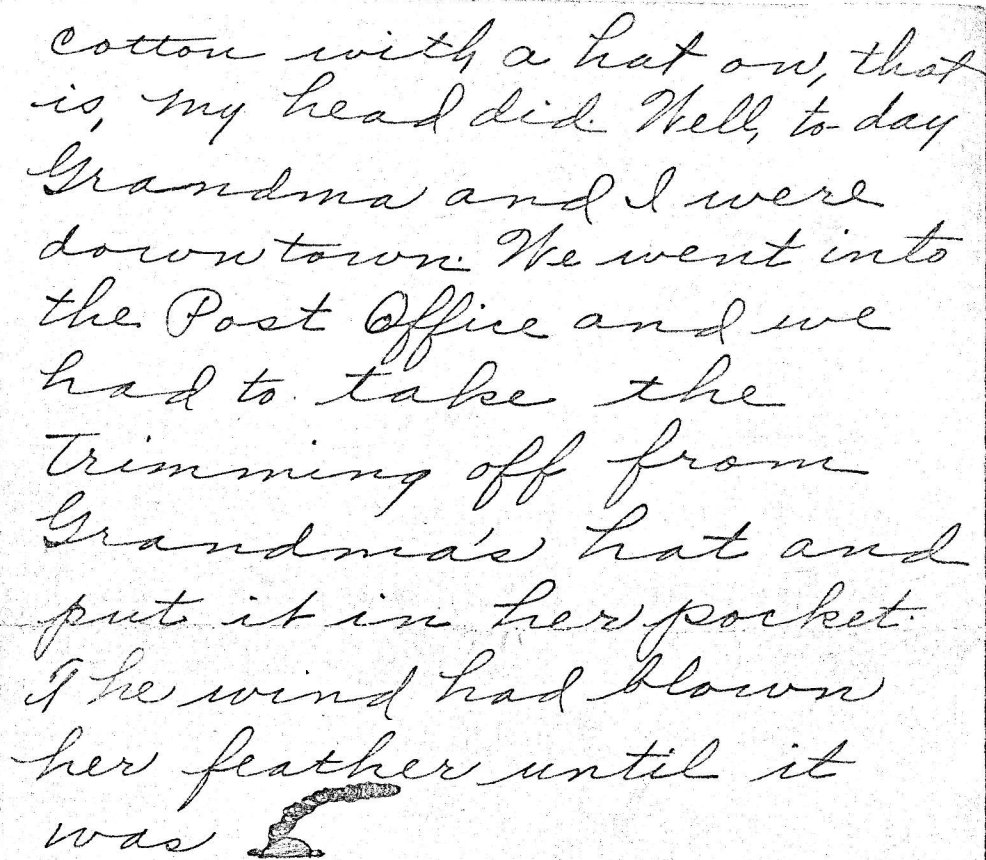 cotton with a hat on, that
is, my head did. Well, to-day
Grandma and I were
downtown. We went into
the Post Office and we
had to take the
trimming off from
Grandma's hat and
put it in her pocket.
The wind had blown
her feather until it
was